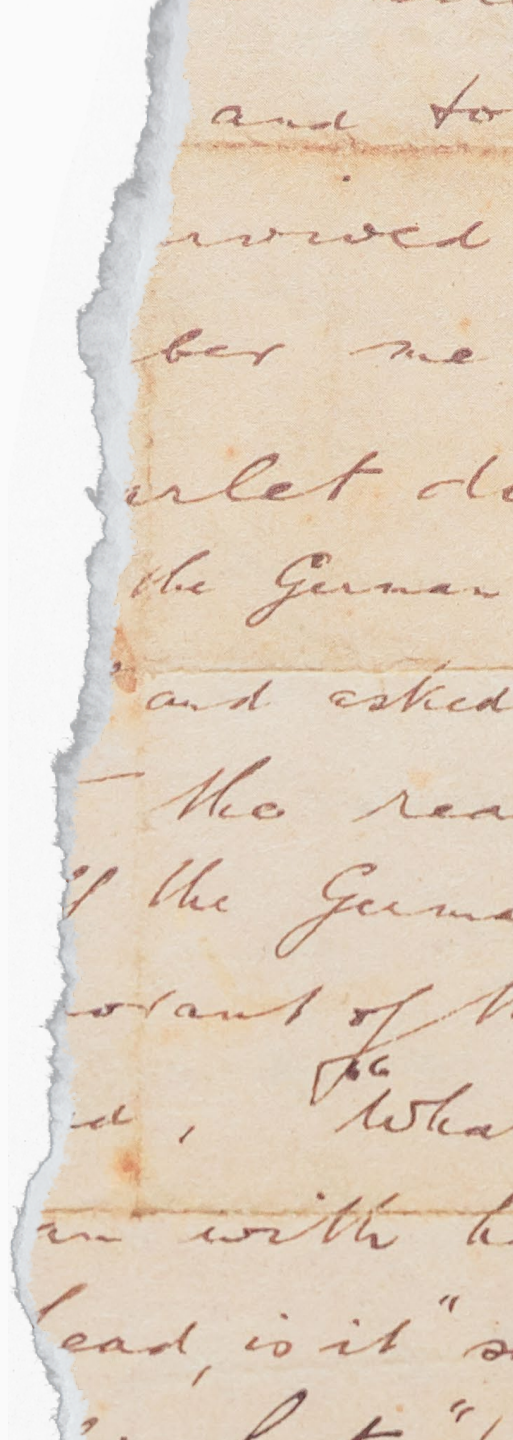 and to
ber me
arlet
the German
and asked
the rea
of the Germa
orant of th
d, "Wha
an with h
head, is it" s